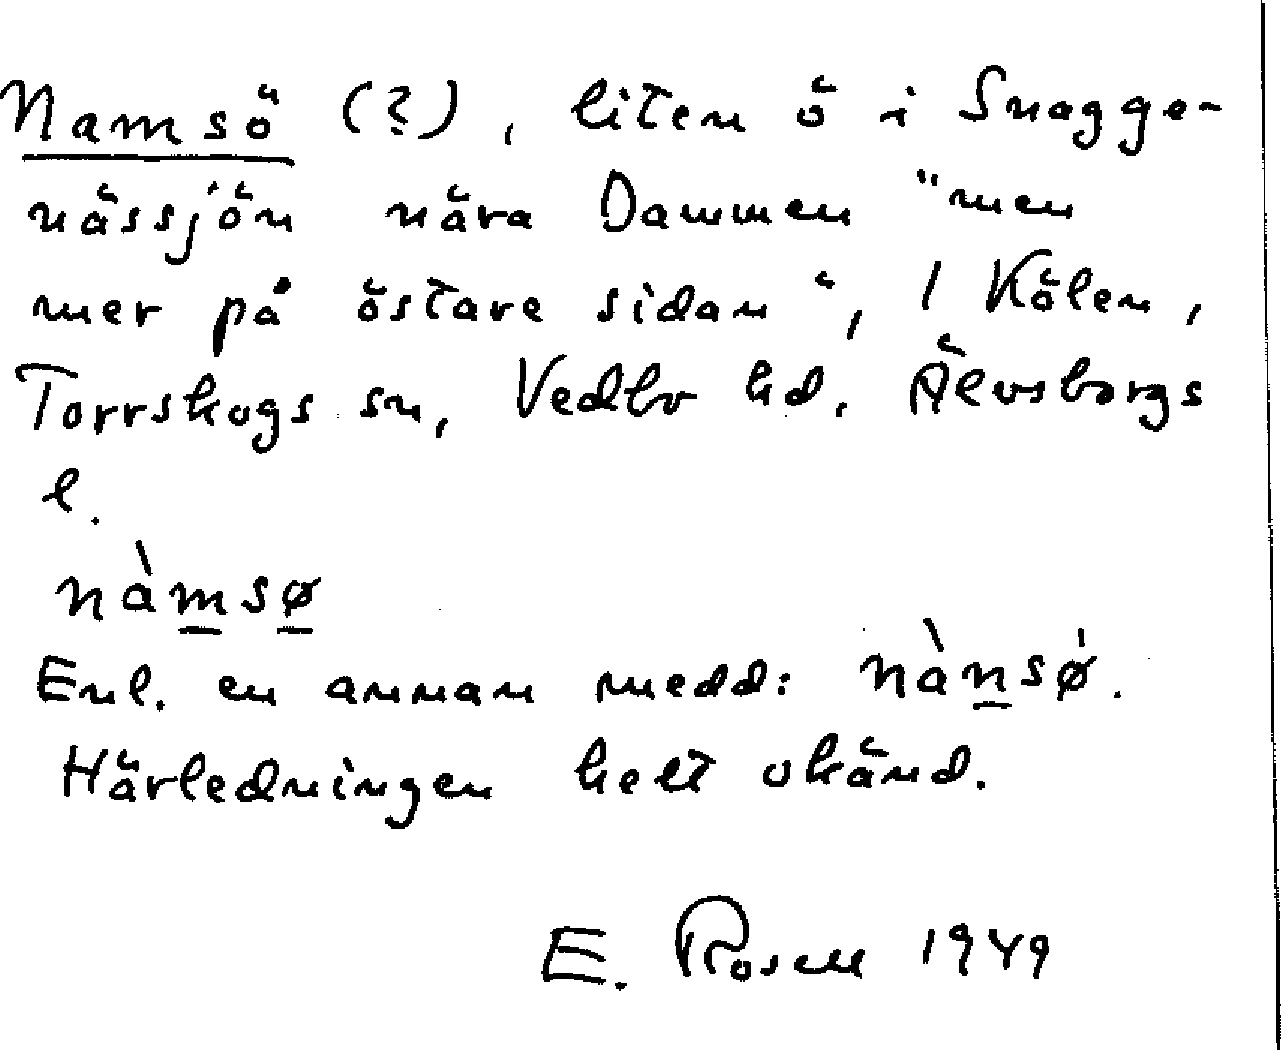 Namsö (?), liten ö i Snagge-
nässjön nära Dammen "men
mer på östare sidan", i Kölen,
Torrskogs sn, Vedbo hd, Älvsborgs
l.
nàmsø
Enl. en annan medd: nànsø.
Härledningen helt okänd.
E. Rosell 1949